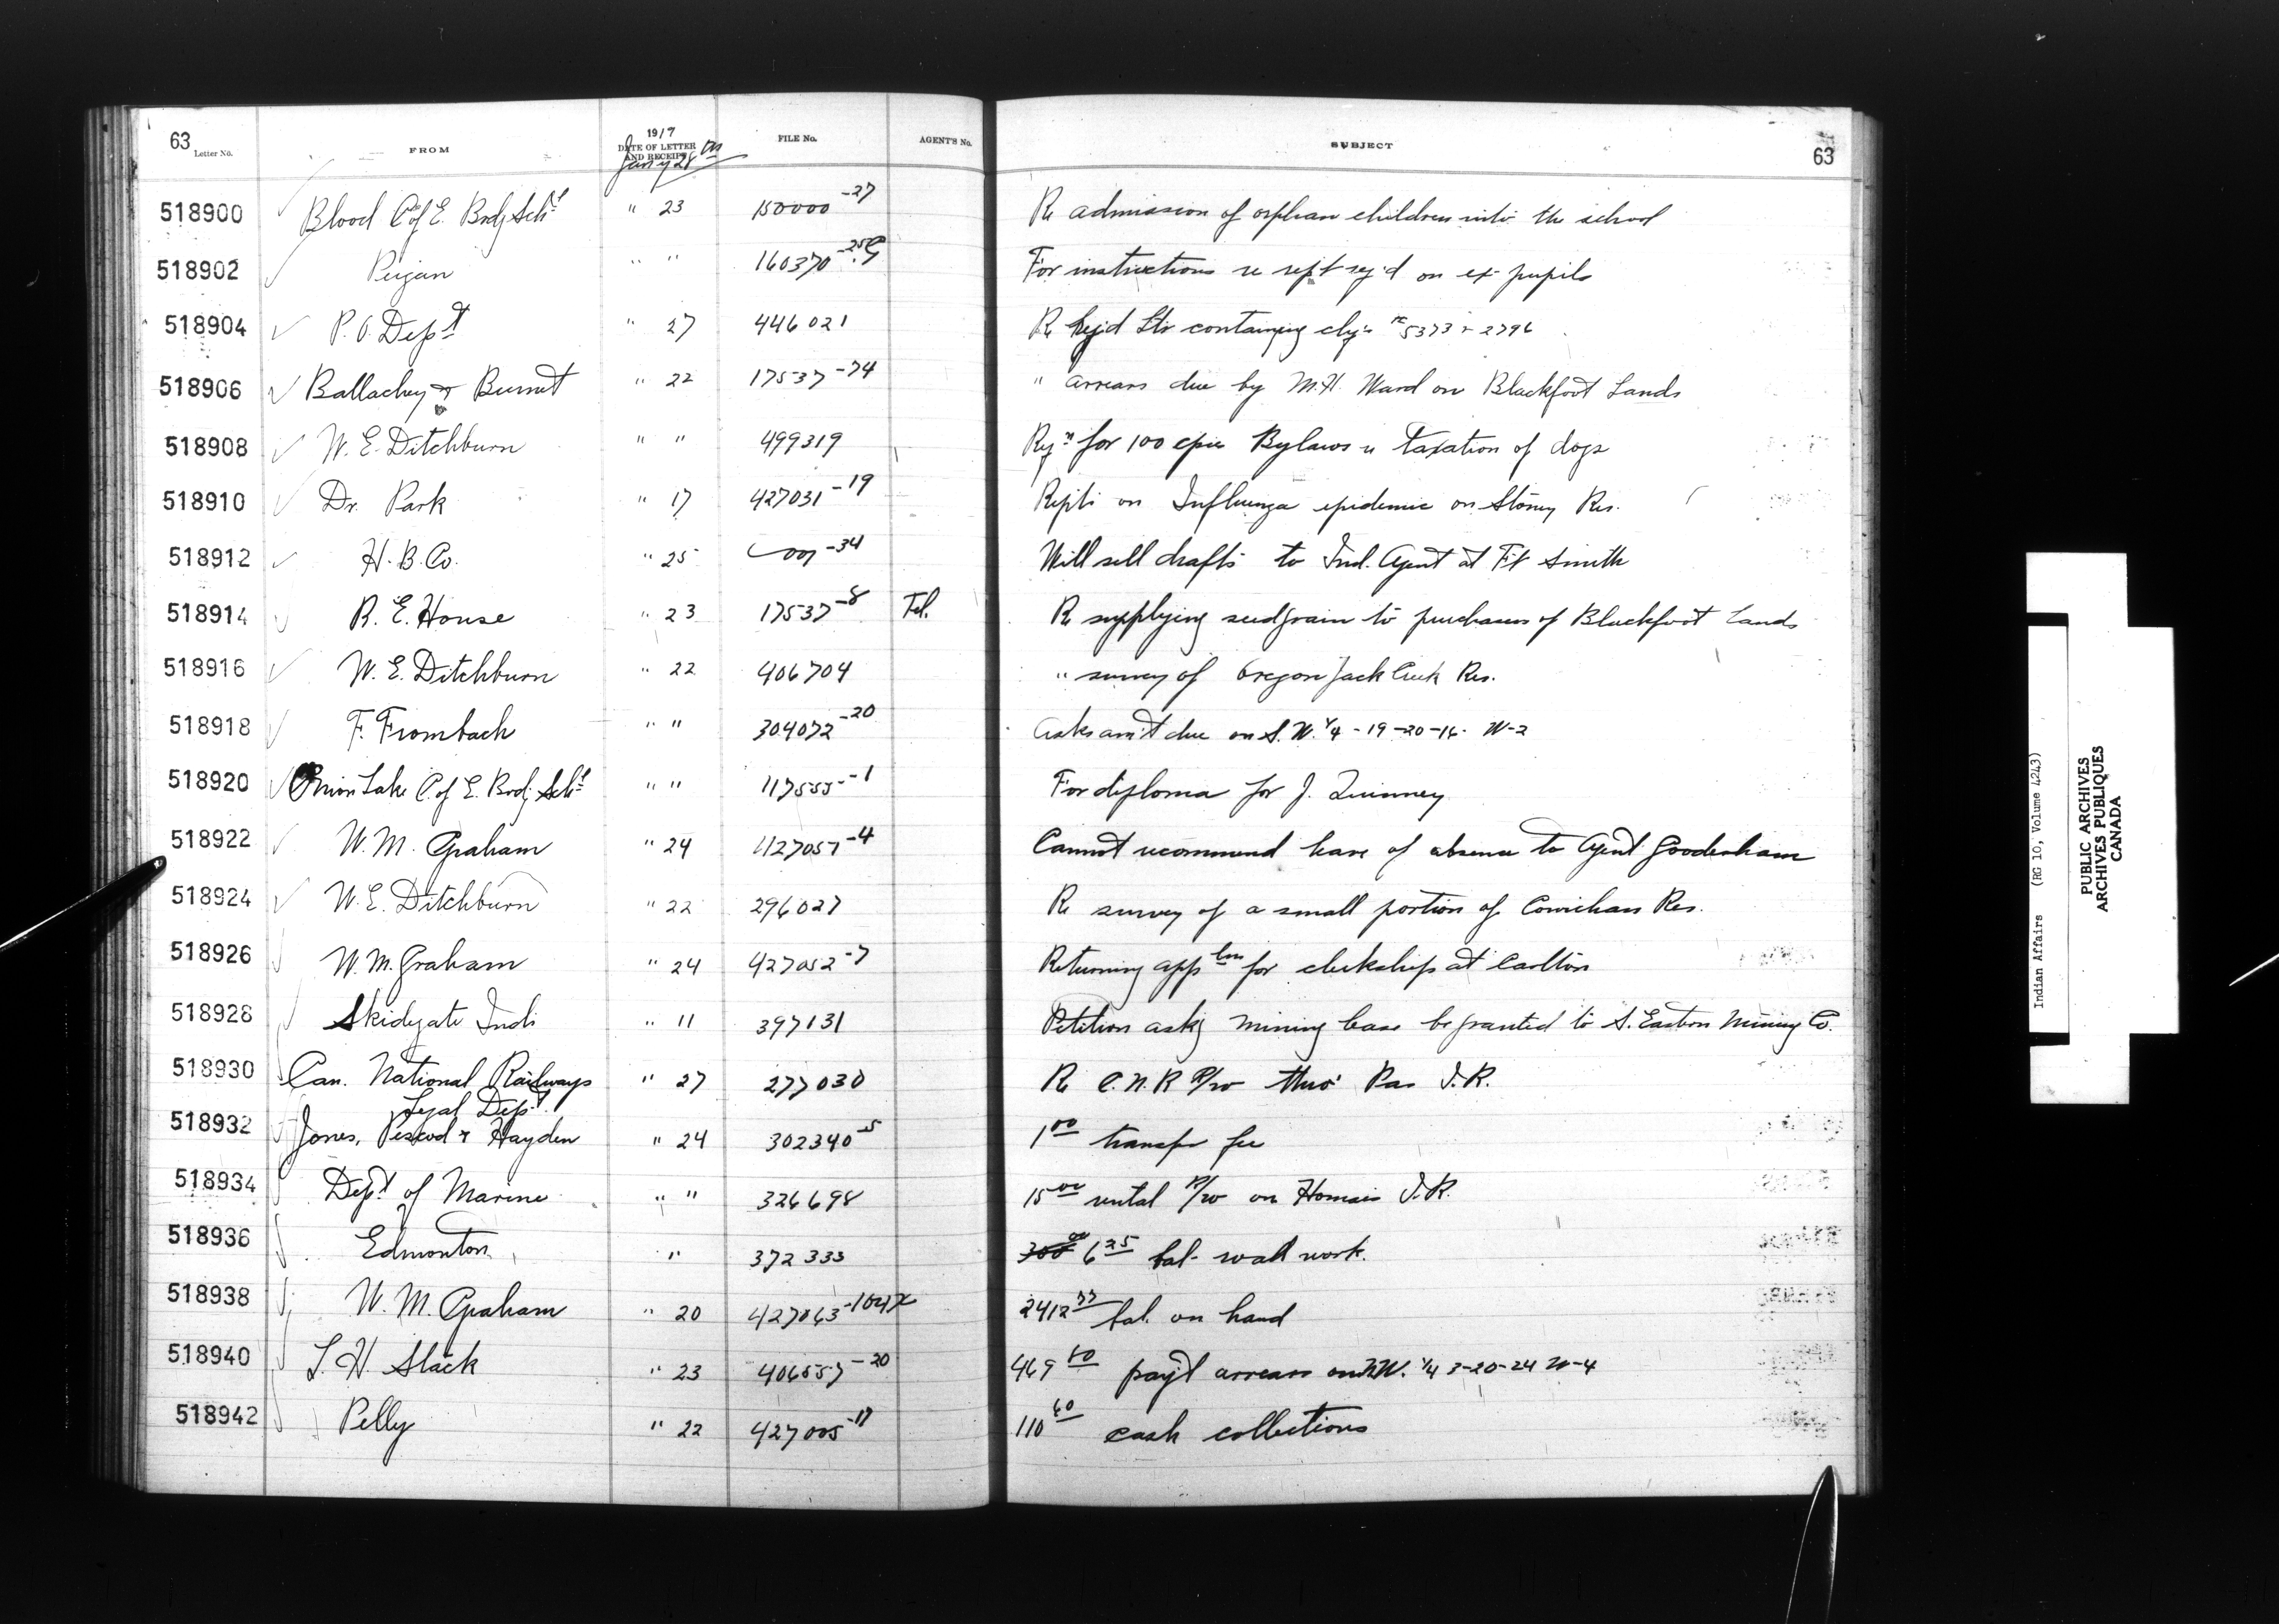 63 Letter No. FROM 1917 DATE OF LETTER AND RECEIPT Jany 28th FILE No. AGENT'S No. SUBJECT 63
518900 Blood C of E. Brdg Schl " 23 150000-27 Re admission of orphan children into the school
518902 Peigan " " 160370-25 For instructions re rept req'd on ex-pupils
518904 P.O. Dept " 27 446021 Re Regd Ltr containing chqs 5373 & 2796
518906 Ballachey & Burnet " 22 17537-74 " arrears due by M.H. Ward on Blackfoot Lands
518908 W. E. Ditchburn " " 499319 Reqn for 100 cpies Bylaws re taxation of dogs
518910 Dr. Park " 17 427031-19 Repts on Influenza epidemic on Stoney Res.
518912 H. B. Co. " 25 -34 Will sell drafts to Ind. Agent at Ft Smith
518914 R. E. House " 23 17537-8 Tel. Re supplying seedgrain to purchasers of Blackfoot Lands
518916 W. E. Ditchburn " 22 406704 " survey of Oregon Jack Creek Res.
518918 F. Frombach " " 304072-20 Asks am't due on S.W. 1/4 - 19-20-16- W-2
518920 Onion Lake C. of E. Brdg Schl " " 117555-1 For diploma for J. Quinney
518922 W. M. Graham " 24 427057-4 Cannot recommend leave of absence to Agent Gooderham
518924 W. E. Ditchburn " 22 296027 Re survey of a small portion of Cowichan Res.
518926 W. M. Graham " 24 427052-7 Returning appln for clerkship at Carlton
518928 Skidegate Inds " 11 397131 Petition askg mining lease be granted to S. Eastern Mining Co.
518930 Can. National Railways " 27 277030 Re C.N.R R/w thro' Pas I.R.
Legal Dept.
518932 Jones, Pescod & Hayden " 24 302340-5 1 00 transfer fee
518934 Dept of Marine " " 326698 15 00 rental R/w on Homais I.R.
518936 Edmonton " 372333 300 00 6 25 bal- wall work.
518938 W. M. Graham " 20 427063-104x 2412 77 bal. on hand
518940 L. H. Slack " 23 406557-20 469 80 payt arrears on N.W. 1/4 3-20-24 W-4
518942 Pelly " 22 427005-17 110 60 cash collections
Indian Affairs (RG 10, Volume 4243)
PUBLIC ARCHIVES
ARCHIVES PUBLIQUES
CANADA